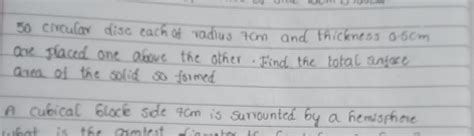 50 circular disc each of radius 7cm and thickness 0.5cm
are placed one above the other. Find the total surface
area of the solid so formed
A cubical block side 7cm is surrounted by a hemisphere
what is the